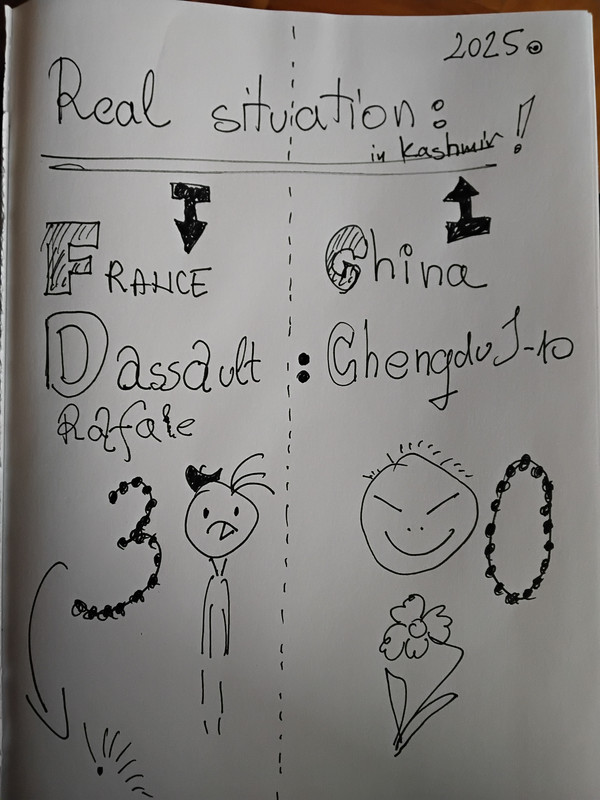 2025.
Real situation:
in Kashmir!
FRANCE
China
Dassault : Chengdu J-10
Rafale
3
0